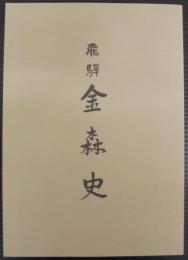 飛騨
金森史